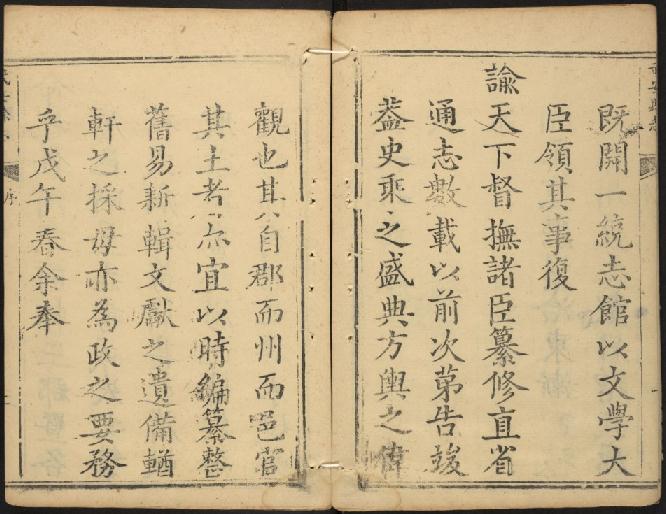 既開一統志館以文學大
臣領其事復
諭天下督撫諸臣纂修直省
通志數載以前次第告竣
葢史乘之盛典方輿之偉
觀也其自郡而州而邑官
其土者亦宜以時編纂整
舊易新輯文獻之遺備輶
軒之採毋亦為政之要務
乎戊午春余奉
序